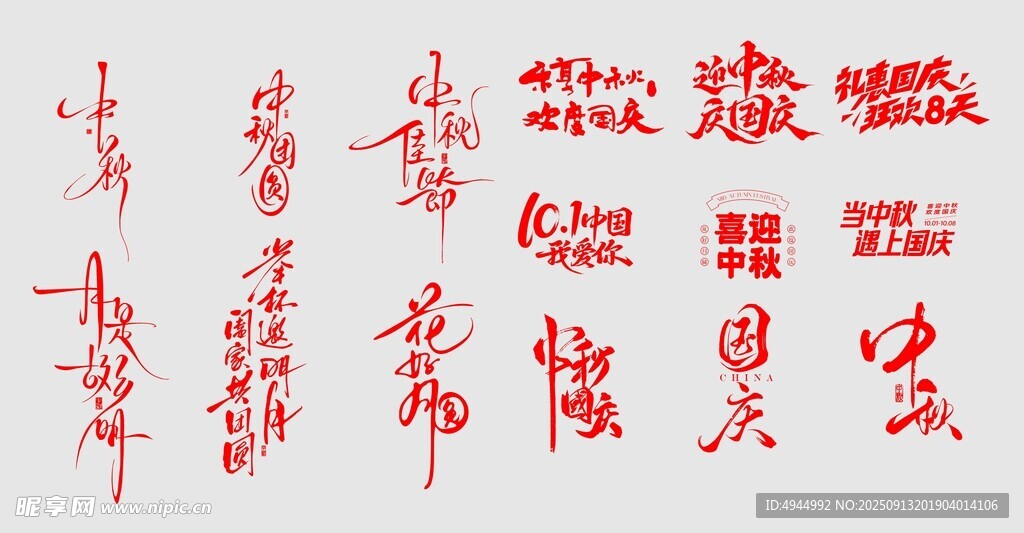 中秋
中秋团圆
中秋
佳節
中秋
欢度国庆
迎中秋
庆国庆
礼惠国庆
狂欢8天
10.1中国
我爱你
MID-AUTUMN FESTIVAL
喜迎
中秋
当中秋
遇上国庆
喜迎中秋
欢度国庆
10.01-10.08
月是故乡明
举杯邀明月
阖家共团圆
花好月圆
中秋
國庆
国
CHINA
庆
中秋
昵享网 www.nipic.cn
ID:4944992 NO:20250913201904014106